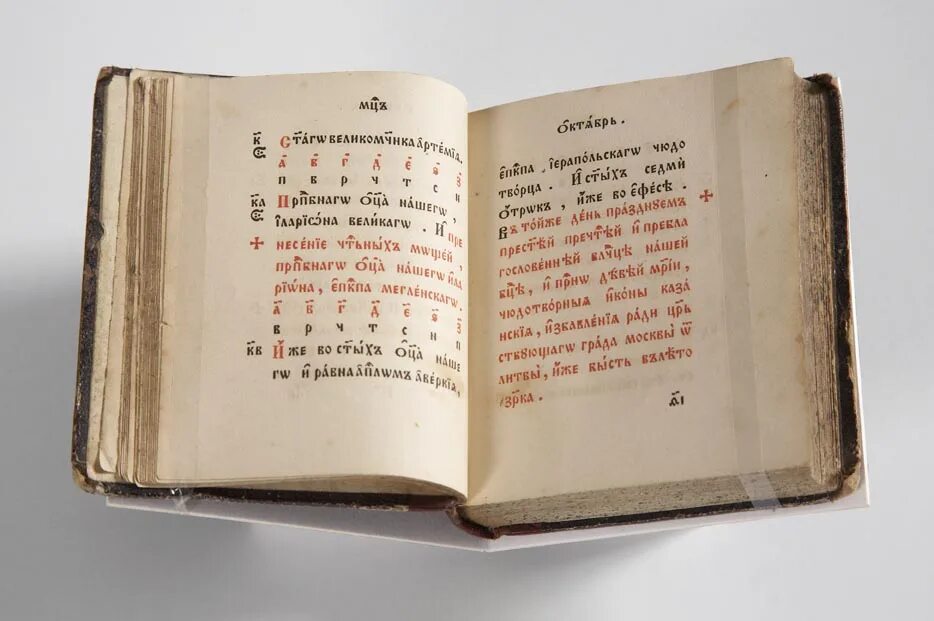 мц҃ъ
к҃ Ст҃а́гѡ великомч҃ника а҆рте́мїа.
а҃ в҃ г҃ д҃ є҃ ѕ҃ з҃
п в р ч т с н
ка Прпⷣбнагѡ ѻ҆ц҃а̀ на́шегѡ,
і҆ларїѡ́на вели́кагѡ. И҆ пре
несе́нїе чⷭ҇тны́хъ моще́й,
прпⷣбнагѡ ѻ҆ц҃а̀ на́шегѡ и҆ла
рїѡ́на, є҆пⷭ҇кпа мегле́нскагѡ.
а҃ в҃ г҃ д҃ є҃ ѕ҃ з҃
в р ч т с н п
кв И҆́же во ст҃ы́хъ ѻ҆ц҃а̀ на́ше
гѡ и҆ ра́вна а҆пⷭ҇лѡмъ а҆ве́ркїа,
Ѻ҆ктѧ́брь.
є҆пⷭ҇кпа, і҆ерапо́льскагѡ чюдо
тво́рца. И҆ ст҃ы́хъ седмѝ
ѻ҆́трѡкъ, и҆́же во є҆фе́сѣ.
Въ то́йже де́нь пра́зднуемъ
прест҃ѣ́й пречⷭ҇тѣ́й и҆ пребла
гослове́ннѣй влⷣчцѣ на́шей
бц҃ѣ, и҆ прⷭ҇нѡ дѣ́вѣй мр҃і́и,
чюдотво́рныѧ и҆ко́ны каза́
нскїѧ, и҆збавле́нїѧ ра́ди ца́рь
ствующагѡ гра́да москвы̀ ѿ
литвы̀, и҆́же бы́сть въ лѣ́то
҂зр҃ка.
а҃і